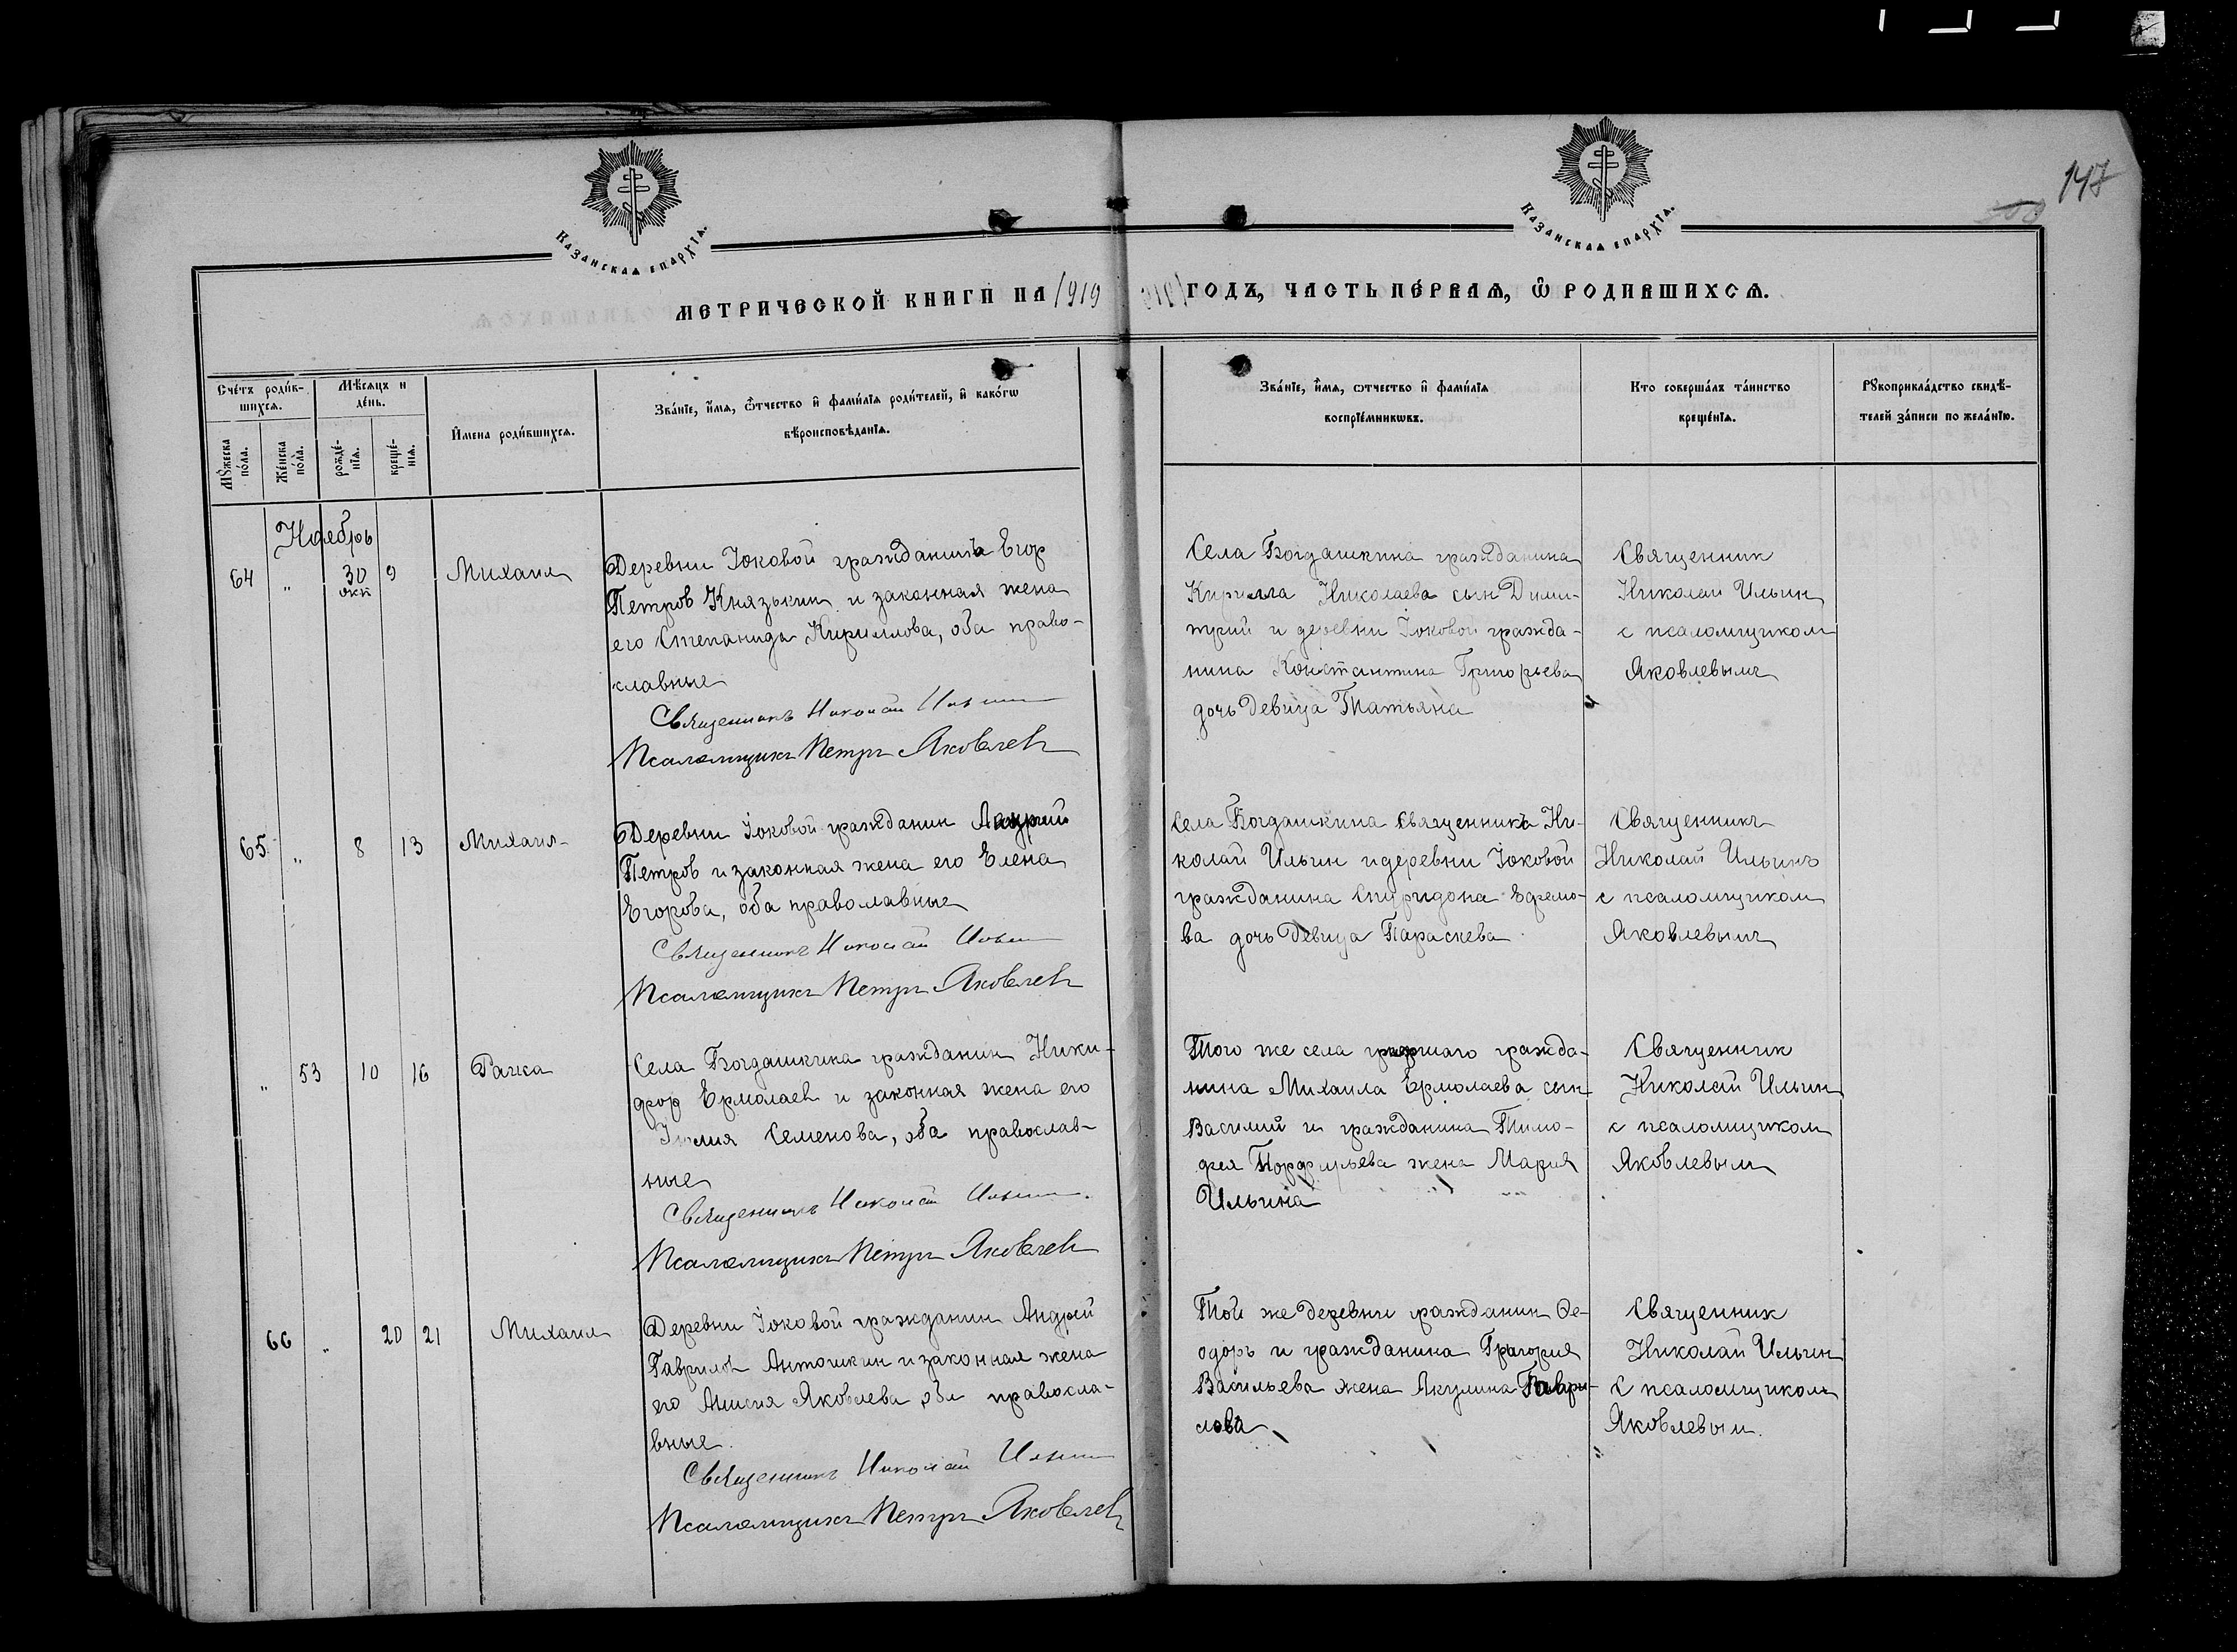 147
Казанская епархїѧ.
Казанская епархїѧ.
Метрической книги на 1919
годъ, часть пе́рваѧ, ѡ҆ родившихсѧ.
Сче́тъ роди́в-
шихсѧ.
Мѣ́сяцъ и
де́нь.
Мꙋ́жеска
по́ла.
Же́нска
по́ла.
рожде́-
нїѧ.
креще́-
нїѧ.
И҆мена роди́вшихсѧ.
Зва́нїе, и҆́мѧ, ѻ҆́тчество и҆ фами́лїѧ роди́телей, и҆ како́гѡ
вѣроисповѣ́данїѧ.
Зва́нїе, и҆́мѧ, ѻ҆́тчество и҆ фами́лїѧ
воспрїе́мникѡвъ.
Кто соверша́лъ та́инство
креще́нїѧ.
Рꙋкоприкла́дство свидѣ́-
телей за́писи по жела́нїю.
Ноябрь
64 " 30 окт 9 Михаил
Деревни Юковой гражданина Егор
Петров Князькин и законная жена
его Степанида Кириллова, оба право-
славные
Священникъ Николай Ильин
Псаломщикъ Петръ Яковлевъ
Села Богдашкина гражданина
Кирилла Николаева сын Дими-
трий и деревни Юковой гражда-
нина Константина Григорьева
дочь девица Татьяна
Священник
Николай Ильин
с псаломщиком
Яковлевымъ
65 " 8 13 Михаил
Деревни Юковой гражданин
Петров и законная жена его Елена
Егорова, оба православные
Священникъ Николай Ильин
Псаломщикъ Петръ Яковлевъ
Села Богдашкина священникъ Ни-
колай Ильин и деревни Юковой
гражданина Спиридона Ефремо-
ва дочь девица Параскева
Священникъ
Николай Ильинъ
с псаломщиком
Яковлевымъ
" 53 10 16 Раиса
Села Богдашкина гражданин Ники-
фор Ермолаев и законная жена его
Юлия Семенова, оба православ-
ные
Священникъ Николай Ильин.
Псаломщикъ Петръ Яковлевъ
Того же села гражда-
нина Михаила Ермолаева сын
Василий и гражданина Тимо-
фея Порфирьева жена Мария
Ильина
Священник
Николай Ильин
с псаломщиком
Яковлевым
66 " 20 21 Михаил
Деревни Юковой гражданин Андрей
Гаврилов Антошкин и законная жена
его Анисия Яковлева оба правосла-
вные.
Священникъ Николай Ильин
Псаломщикъ Петръ Яковлевъ
Той же деревни гражданин Фе-
одоръ и гражданина Григория
Васильева жена Акулина Гаври-
лова
Священник
Николай Ильин
С псаломщиком
Яковлевым.